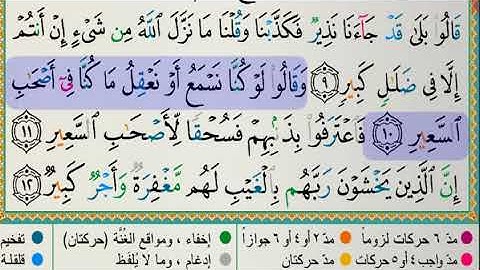 قَالُوا۟ بَلَىٰ قَدْ جَآءَنَا نَذِيرٌ فَكَذَّبْنَا وَقُلْنَا مَا نَزَّلَ ٱللَّهُ مِن شَىْءٍ إِنْ أَنتُمْ
إِلَّا فِى ضَلَـٰلٍ كَبِيرٍ ٩ وَقَالُوا۟ لَوْ كُنَّا نَسْمَعُ أَوْ نَعْقِلُ مَا كُنَّا فِىٓ أَصْحَـٰبِ
ٱلسَّعِيرِ ١٠ فَٱعْتَرَفُوا۟ بِذَنۢبِهِمْ فَسُحْقًا لِّأَصْحَـٰبِ ٱلسَّعِيرِ ١١
إِنَّ ٱلَّذِينَ يَخْشَوْنَ رَبَّهُم بِٱلْغَيْبِ لَهُم مَّغْفِرَةٌ وَأَجْرٌ كَبِيرٌ ١٢
مدّ ٦ حركات لزوماً مدّ ٢ أو ٤ أو ٦ جوازاً إخفاء ، ومواقع الغُنَّة (حركتان) تفخيم
مدّ واجب ٤ أو ٥ حركات مدّ حركتان إدغام ، وما لا يُلفَظ قلقلة